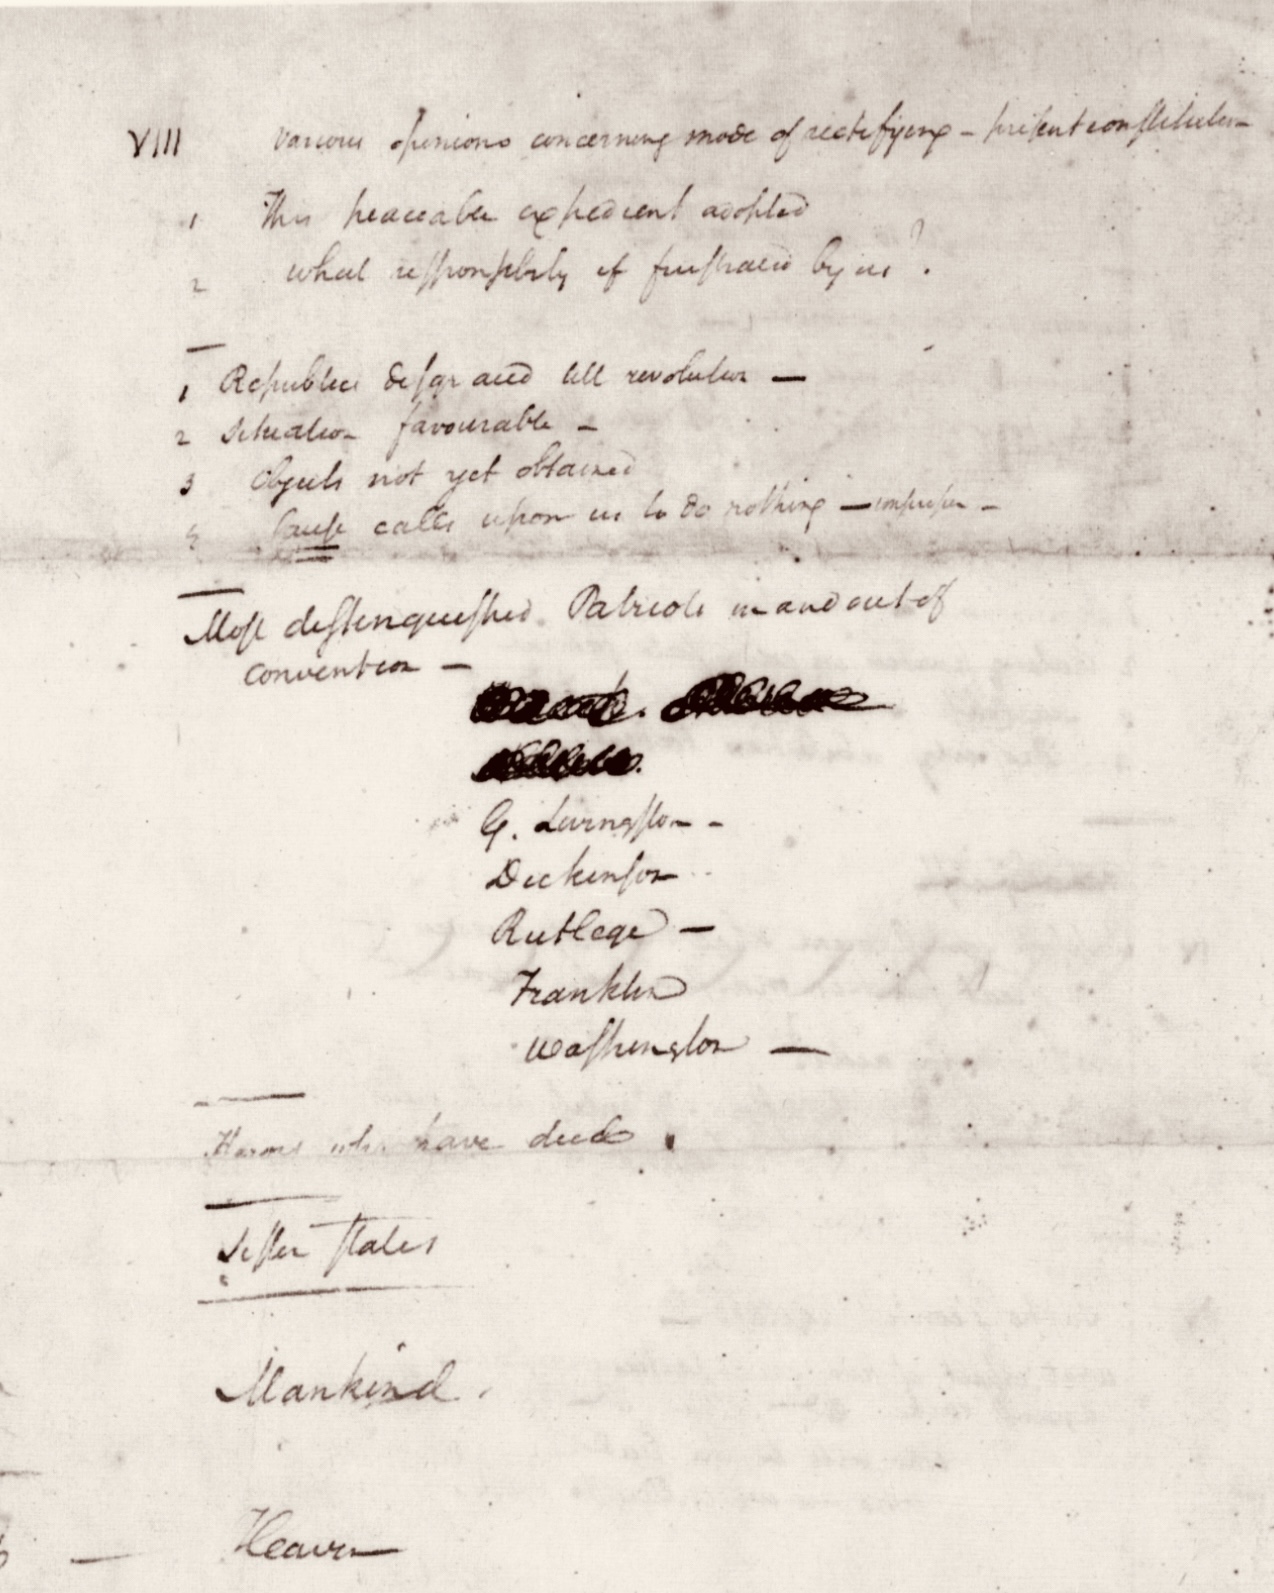 VIII various opinions concerning mode of rectifying – present constitution
1 This peaceable expedient adopted
2 what responsibily if frustrated by us?
1 Republics disgraced till revolution —
2 Situation favourable –
3 Objects not yet obtained
calls upon us to do nothing — improper –
Most distinguished Patriots in and out of
convention –
G. Livingston –
Dickinson
Rutlege —
Franklin
Washington —
Heroes who have died .
Sister States
Mankind .
— Heaven